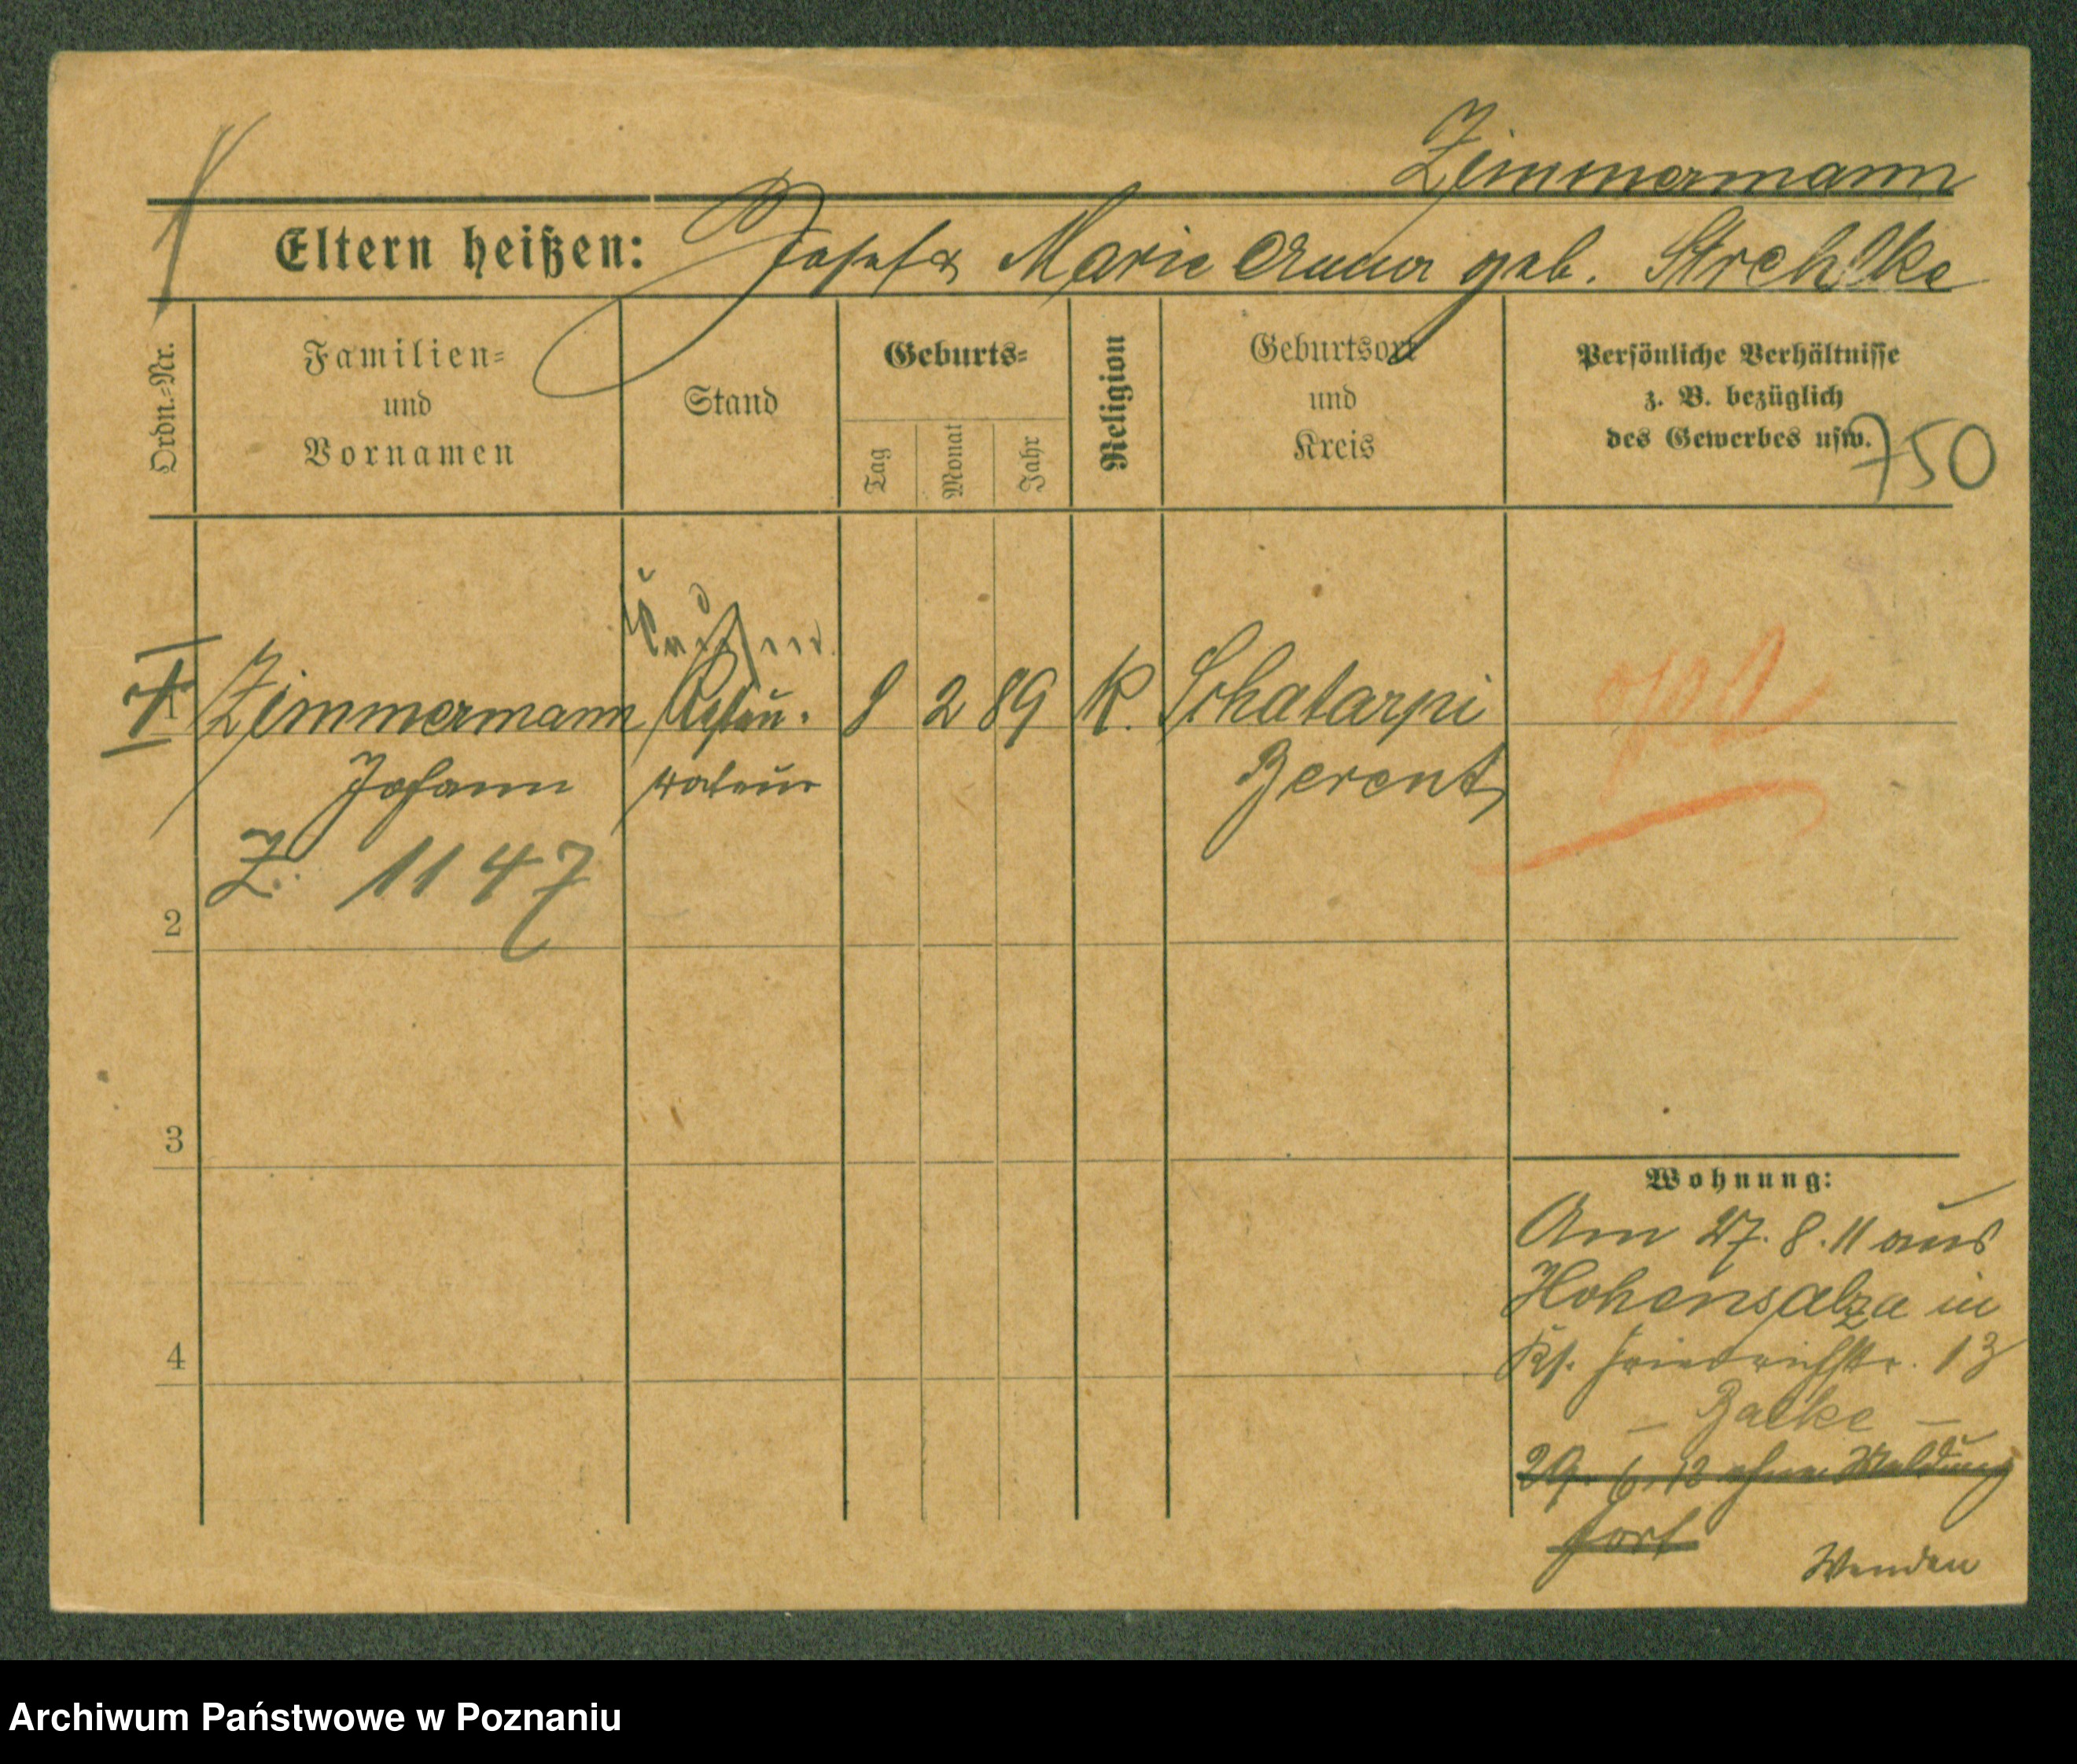 Zimmermann
Eltern heißen: Josef & Marie Anna geb. Strehlke
Ordn.=Nr.
Familien=
und
Vornamen
Stand
Geburts=
Tag
Monat
Jahr
Religion
Geburtsort
und
Kreis
Persönliche Verhältnisse
z. B. bezüglich
des Gewerbes usw.
750
1 Zimmermann Restau- 8 2 89 K. Schatarpi
Johann rateur Berent
Z. 1147
2
3
4
Wohnung:
Am 27. 8. 11 aus
Hohensalza in
Ks. Friedrichstr. 13
29. 6. 12 ohne Meldung
fort
Wenden
Archiwum Państwowe w Poznaniu